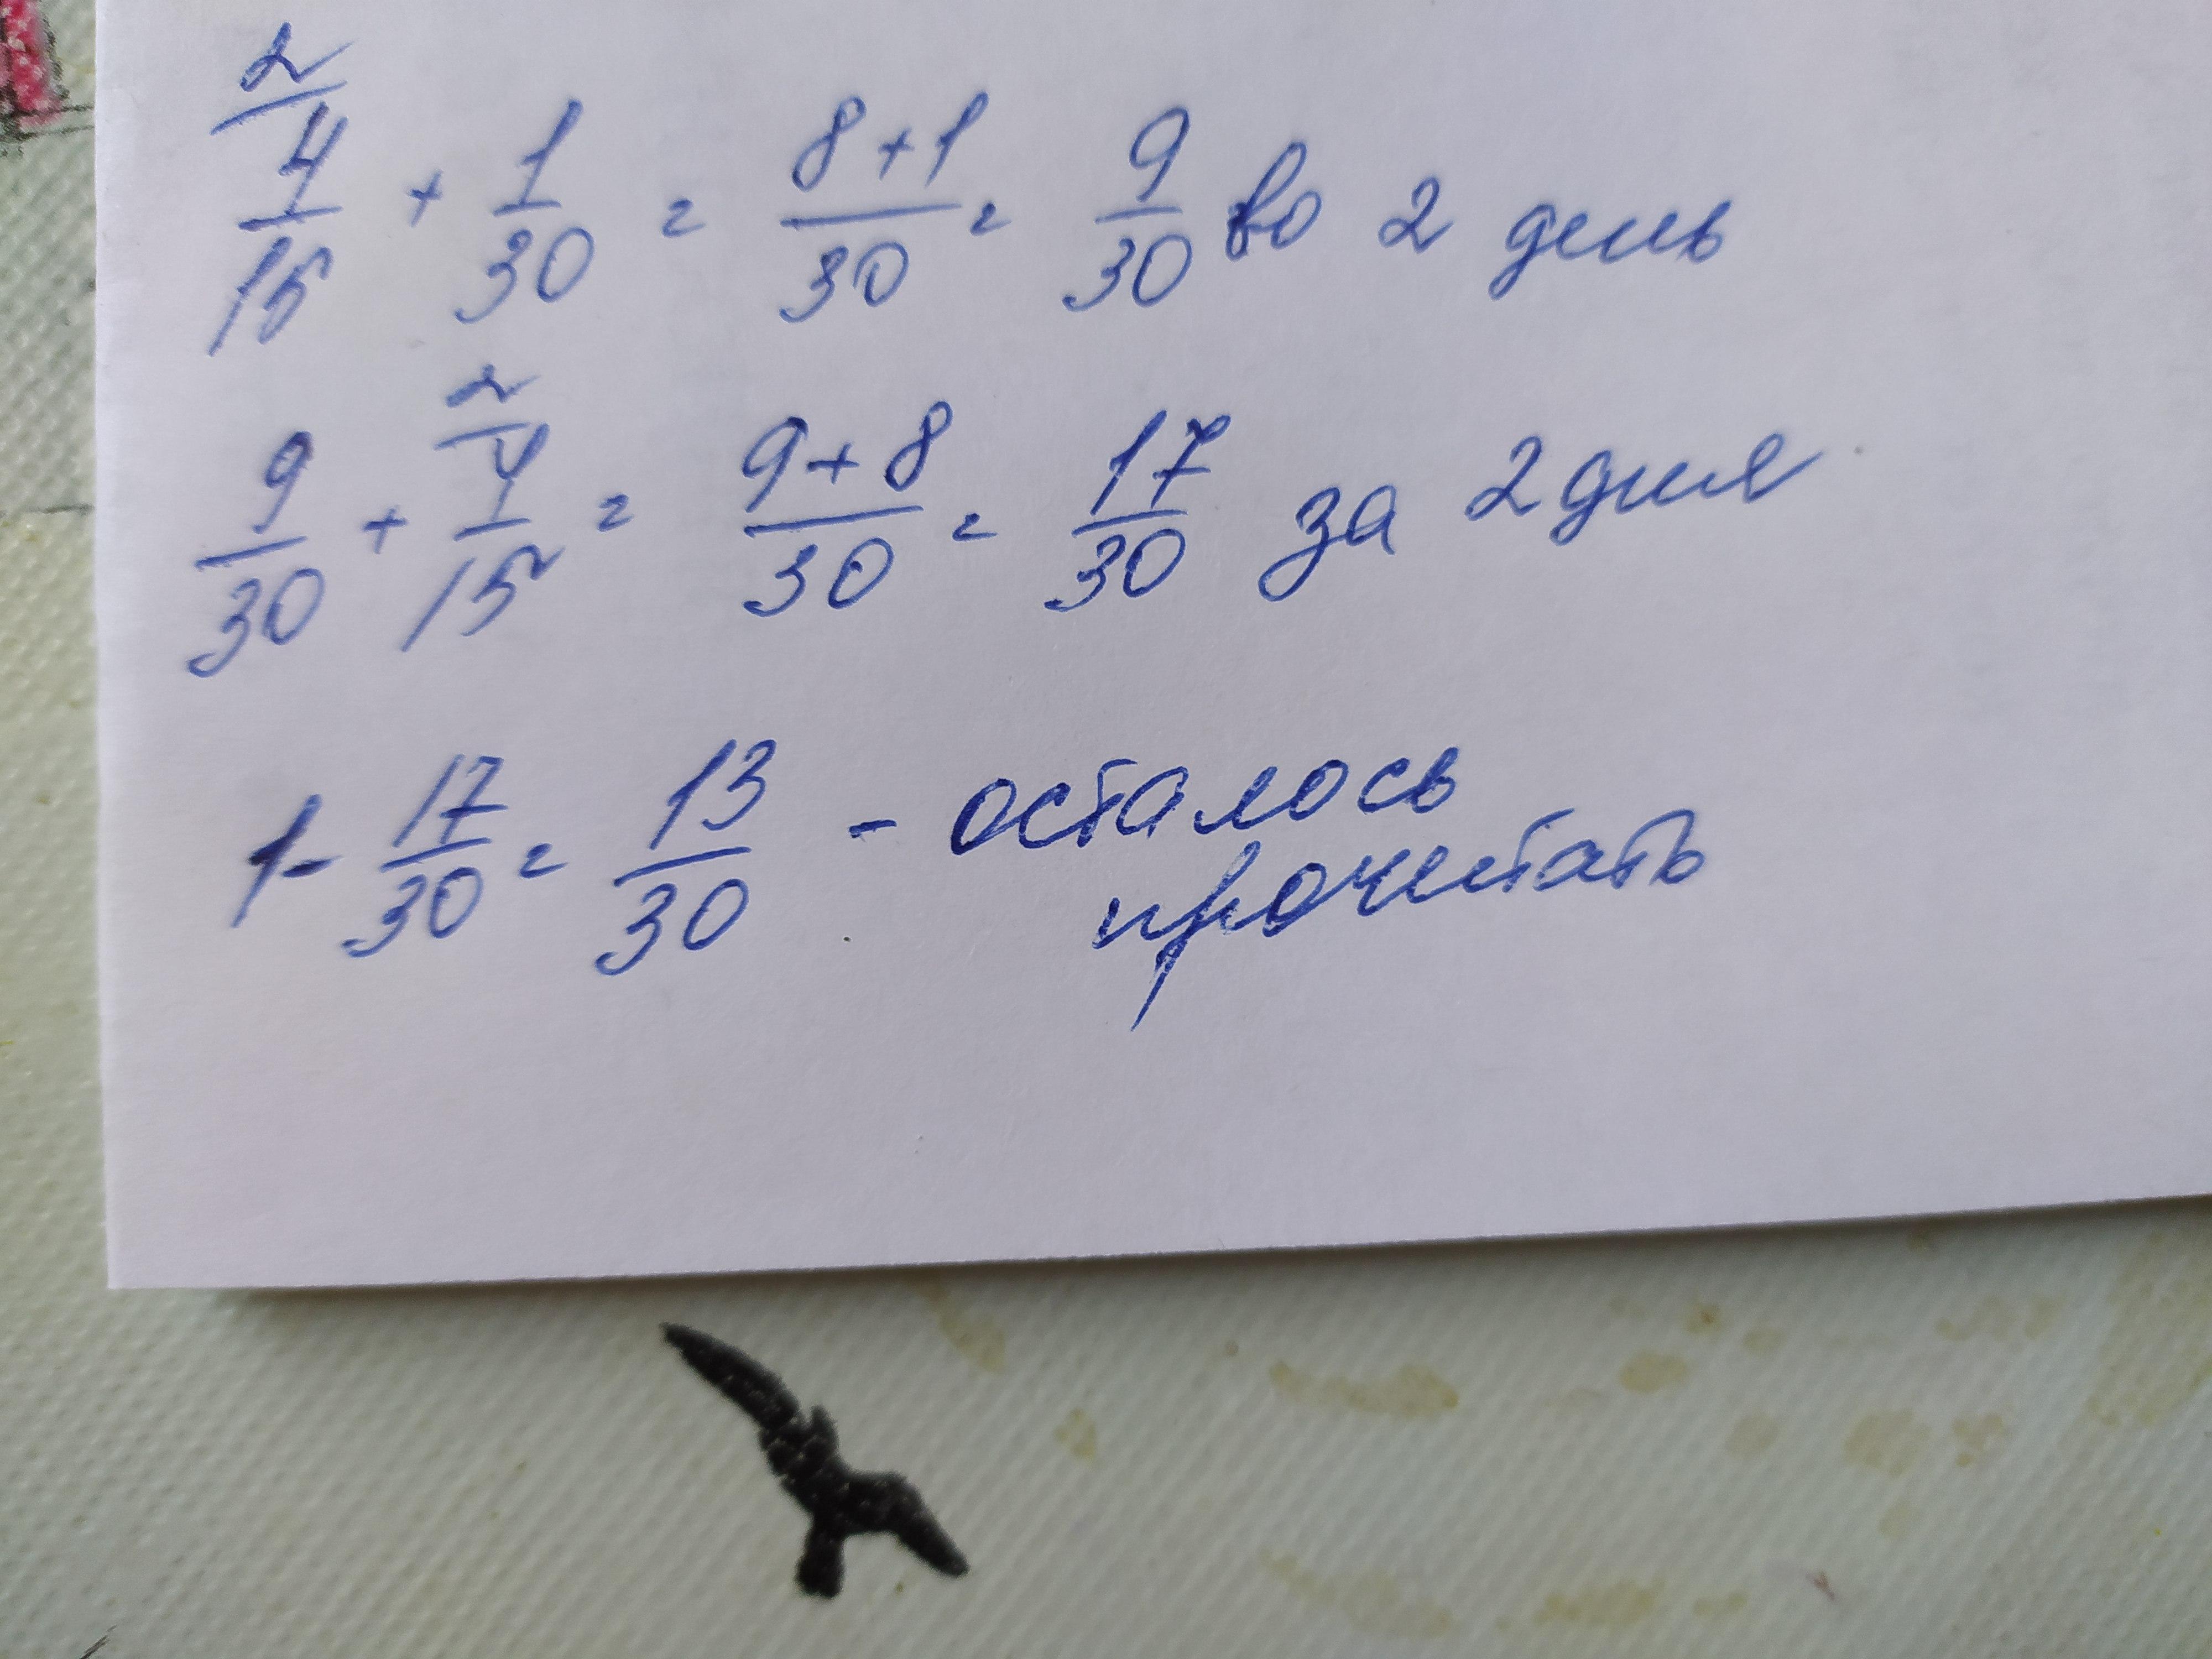 2/
4/15 + 1/30 = 8+1/30 = 9/30 во 2 день
2/
9/30 + 4/15 = 9+8/30 = 17/30 за 2 дня
1 - 17/30 = 13/30 - осталось
прочитать